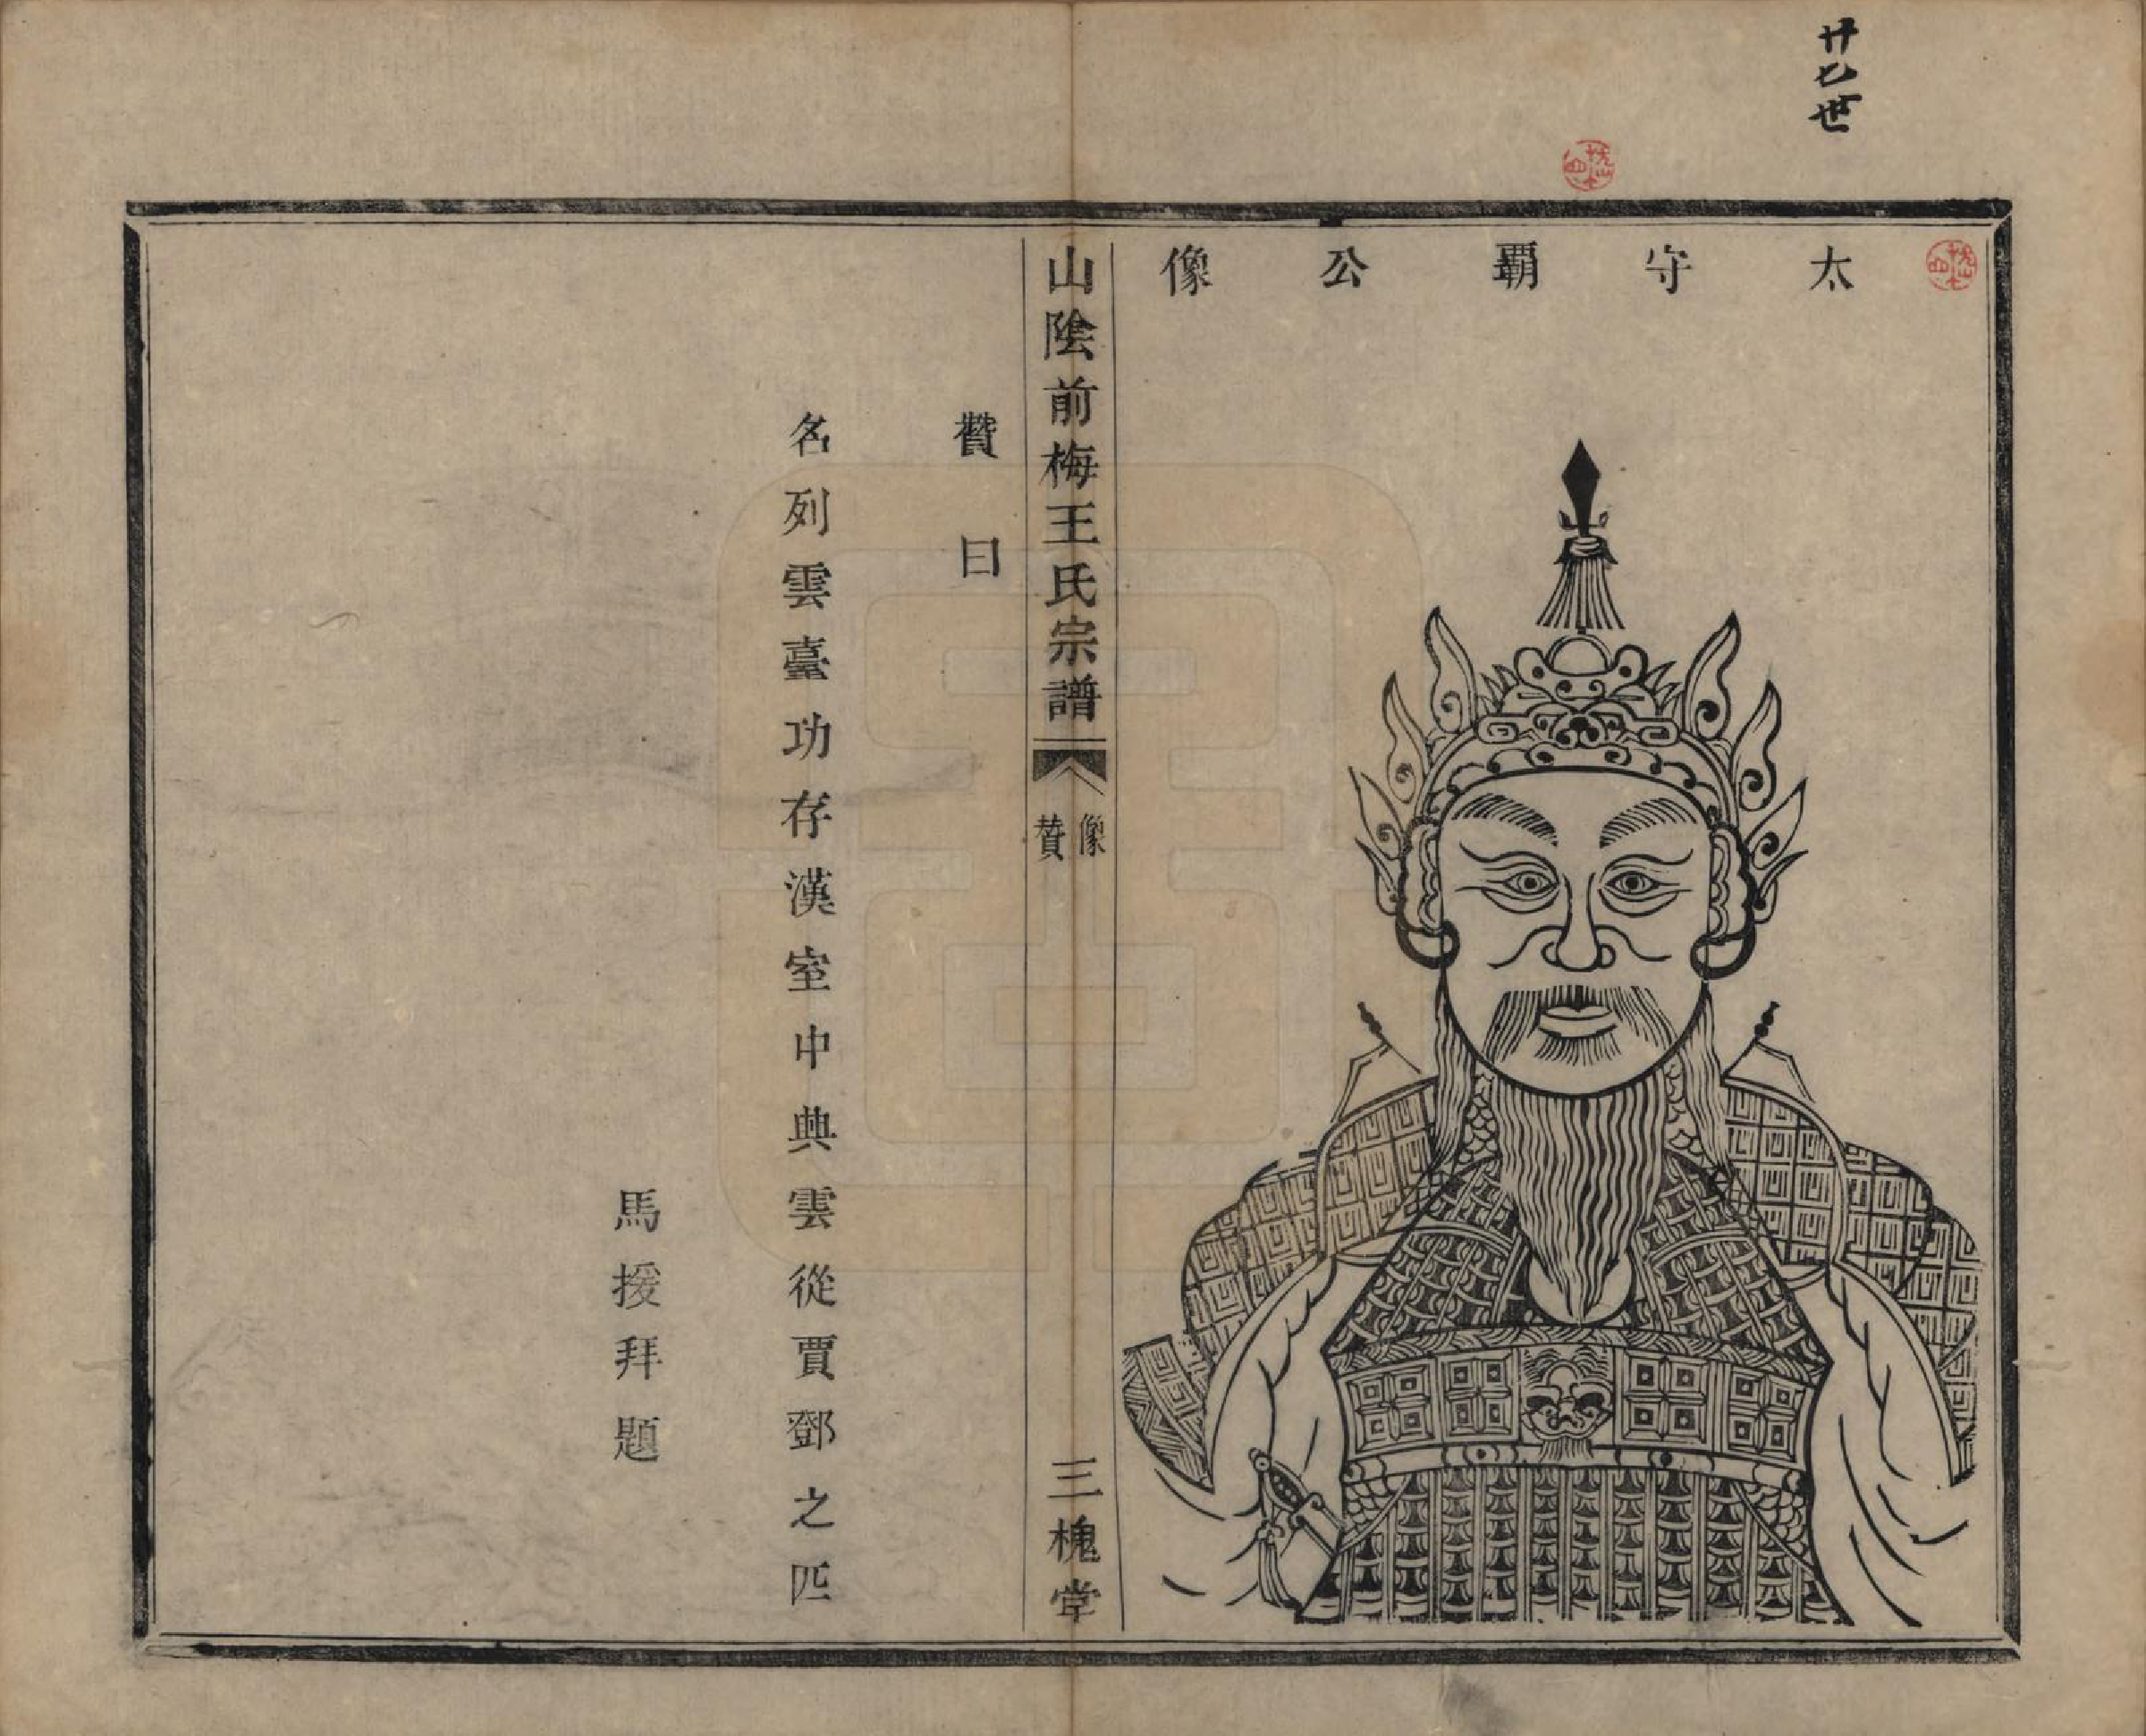 廿七世
太守覇公像
山陰前梅王氏宗譜
像贊
三槐堂
贊曰
名列雲臺功存漢室中典雲從賈鄧之匹
馬援拜題